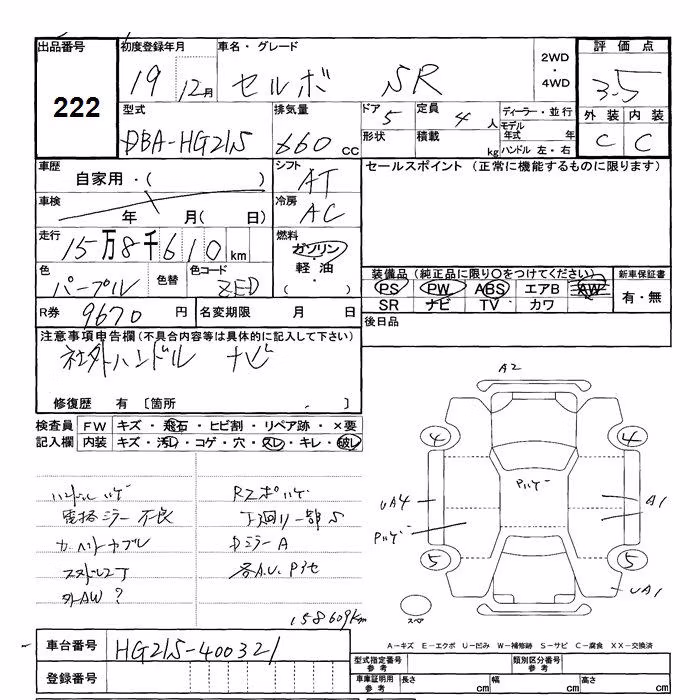 出品番号
222
初度登録年月
19 12月
車名・グレード
セルボ SR
2WD
・
4WD
評価点
3.5
型式
DBA-HG21S
排気量
660 cc
ドア
5
形状
定員
4 人
積載 kg
ディーラー・並行
モデル
年式 年
ハンドル 左・右
外装 内装
C C
車歴
自家用・( )
シフト
AT
セールスポイント (正常に機能するものに限ります)
車検
年 月( 日)
冷房
AC
走行
15万8千610km
燃料
ガソリン
・
軽油
( ・ )
色
パープル
色替
色コード
ZED
装備品(純正品に限り〇をつけてください)
PS PW ABS エアB AW
SR ナビ TV カワ
新車保証書
有・無
R券
9670円
名変期限 月 日
後日品
注意事項申告欄(不具合内容等は具体的に記入して下さい)
社外ハンドル ナビ
修復歴 有 〔箇所 〕
検査員
記入欄
FW キズ・飛石・ヒビ割・リペア跡・×要
内装 キズ・汚レ・コゲ・穴・スレ・キレ・破レ
ハンドルハゲ
電格ミラー不良
外AW?
Rスポハゲ
下廻り一部S
DミラーA
各A.U.
158609km
A2
4
4
Pハゲ
UA4
A1
Pハゲ
5
5
UA1
スペア
車台番号
HG21S-400321
登録番号
A-キズ E-エクボ U-凹み W-補修跡 S-サビ C-腐食 XX-交換済
型式指定番号
参考
類別区分番号
参考
車庫証明用
参考
長さ cm
幅 cm
高さ cm